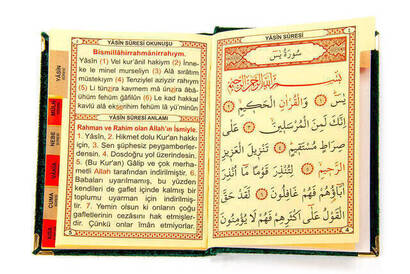 YÂSÎN SÛRESİ OKUNUŞU
Bismillâhirrahmânirrahıym.
(1) Yâsîn (1) Vel kur'ânil hakiym (2) İnne-
ke le minel murseliyn (3) Alâ sırâtım
müstekıym (4) Tenziylel aziyzir rahıym
(5) Li tünzira kavmem mâ ünzira âbâ-
ühüm fehüm ğâfilûn (6) Le kad hakkal
kavlü alâ ekserihim fehüm lâ yü'minûn
YÂSÎN SÛRESİ ANLAMI
Rahman ve Rahim olan Allah'ın İsmiyle.
1. Yâsîn, 2. Hikmet dolu Kur'an hakkı
için, 3. Sen şüphesiz peygamberler-
densin. 4. Dosdoğru yol üzerindesin.
5. (Bu Kur'an) Gâlip ve çok merha-
metli Allah tarafından indirilmiştir. 6.
Babaları uyarılmamış, bu yüzden
kendileri de gaflet içinde kalmış bir
toplumu uyarman için indirilmiş-
tir. 7. Yemin olsun ki onların çoğu
gafletlerinin cezasını hak etmişler-
dir. Çünkü onlar îman etmiyorlar.
YÂSÎN
MÜLK
NEBE
CUMA
YÂSÎN SÛRESİ
سُورَةُ يٰسٓ
بِسْمِ اللّٰهِ الرَّحْمٰنِ الرَّحِيمِ
يٰسٓ ﴿١﴾ وَالْقُرْاٰنِ الْحَكِيمِ ﴿٢﴾
اِنَّكَ لَمِنَ الْمُرْسَلِينَ ﴿٣﴾ عَلٰى
صِرَاطٍ مُسْتَقِيمٍ ﴿٤﴾ تَنْزِيلَ الْعَزِيزِ
الرَّحِيمِ ﴿٥﴾ لِتُنْذِرَ قَوْمًا مَٓا اُنْذِرَ
اٰبَٓاؤُهُمْ فَهُمْ غَافِلُونَ ﴿٦﴾ لَقَدْ حَقَّ
الْقَوْلُ عَلٰٓى اَكْثَرِهِمْ فَهُمْ لَا يُؤْمِنُونَ